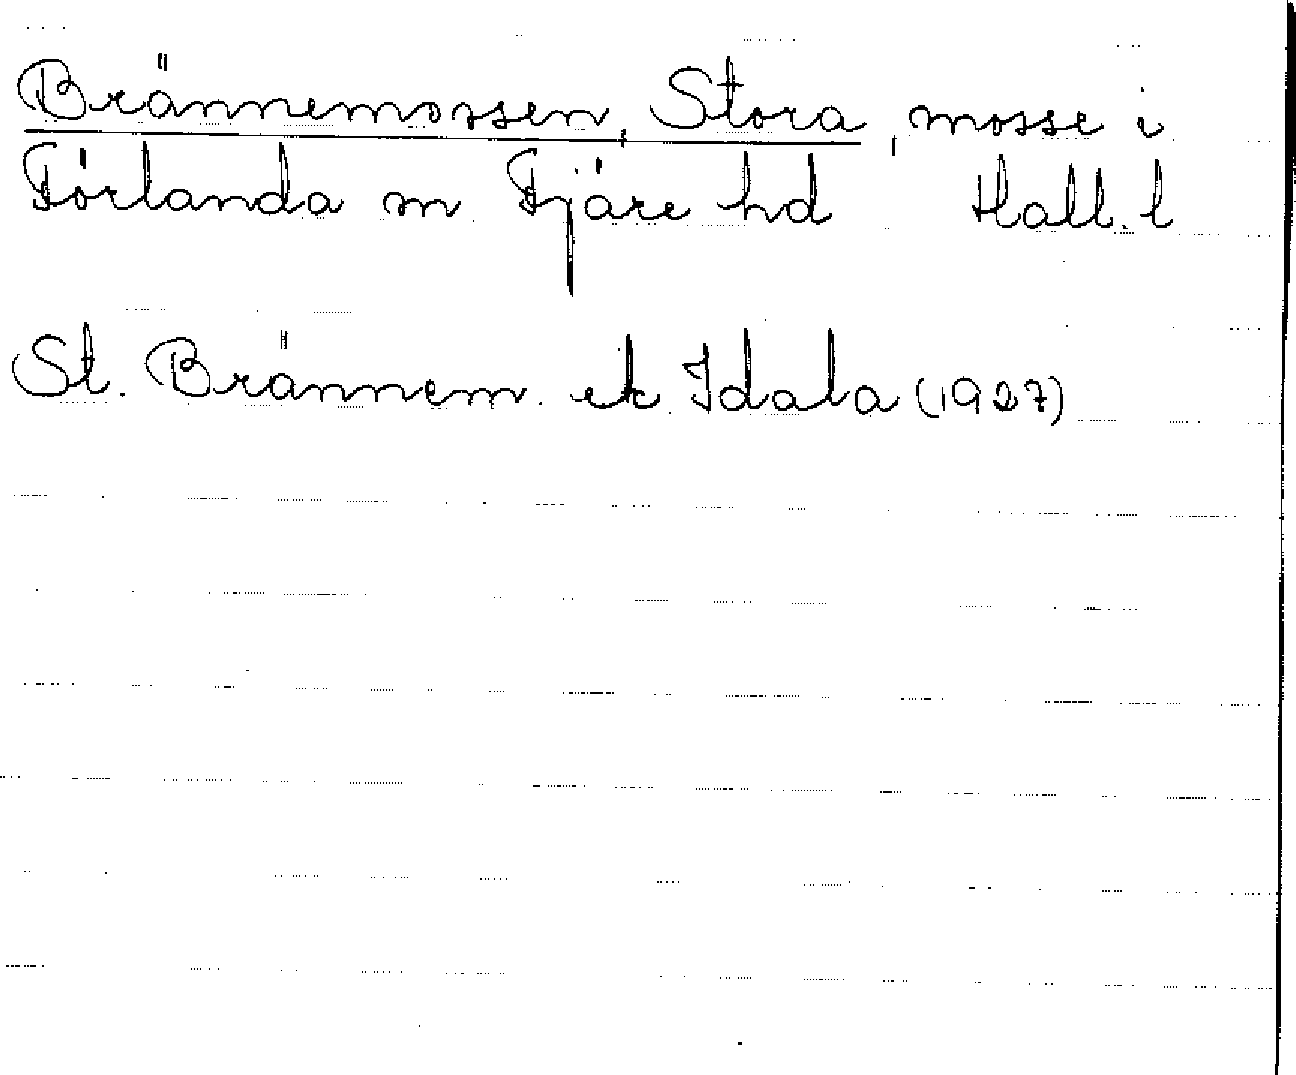 Brännemossen, Stora, mosse i
Förlanda sn Fjäre hd Hall. l
St. Brännem. ek Idala (1927)